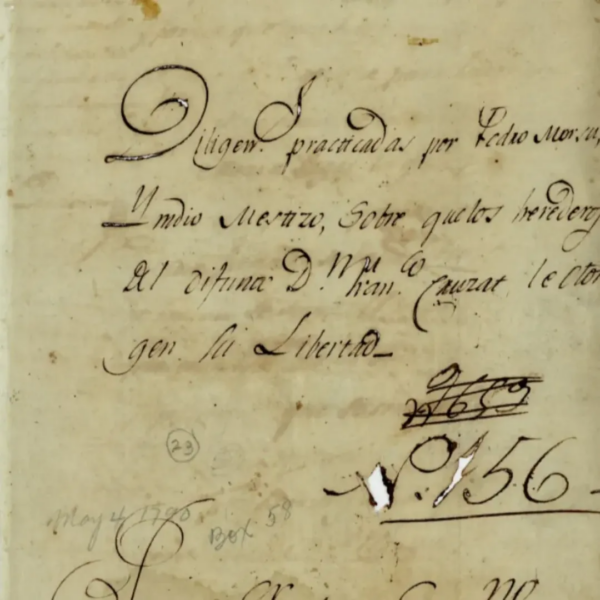 Diligen.s practicadas por Pedro Morsu,
Yndio Mestizo, Sobre que los herederos
del difunto D.n Fran.co Cauzat, le otor
gen su Libertad
N.o 156
23
May 4 1790
Box 58